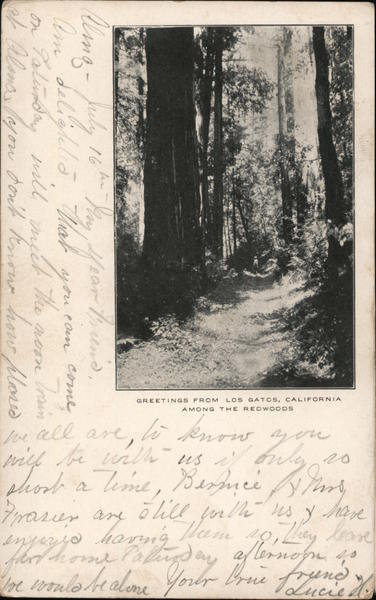 Alma - July 16th My Dear Friend,
Am delighted that you can come
on Saturday will meet the noon train
at Alma, you don't know how pleased
GREETINGS FROM LOS GATOS, CALIFORNIA
AMONG THE REDWOODS
we all are, to know you
will be with us if only so
short a time, Bernice & Mrs
Frasier are still with us & have
enjoyed having them so, they leave
for home Saturday afternoon so
we would be alone Your true friend
Lucie H.